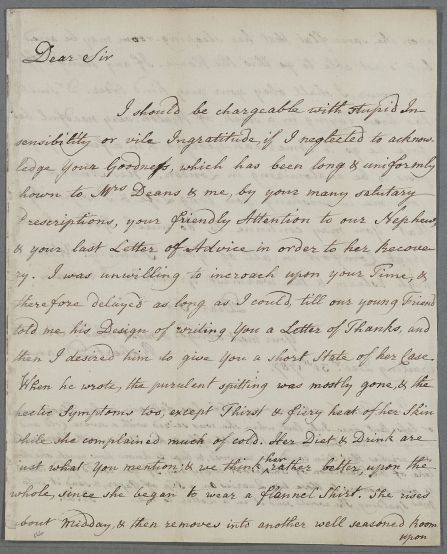 Dear Sir
I should be chargeable with stupid In
sensibility or vile Ingratitude, if I neglected to acknow
ledge your Goodness, which has been long & uniformly
shown to Mrs Deans & me, by your many salutary
Prescriptions, your friendly Attention to our Nephew,
& your last Letter of Advice in order to her Recove
ry. I was unwilling to incroach upon your Time, &
therefore delayed as long as I could, till our young Friend
told me his Design of writing you a Letter of Thanks, and
then I desired him to give you a short State of her Case.
When he wrote, the purulent spitting was mostly gone, & the
hectic Symptoms too, except Thirst & fiery heat of her Skin
while she complained much of cold. Her Diet & Drink are
just what you mention; & we think her rather better, upon the
whole, since she began to wear a flannel Shirt. She rises
about Midday, & then removes into another well seasoned Room
upon